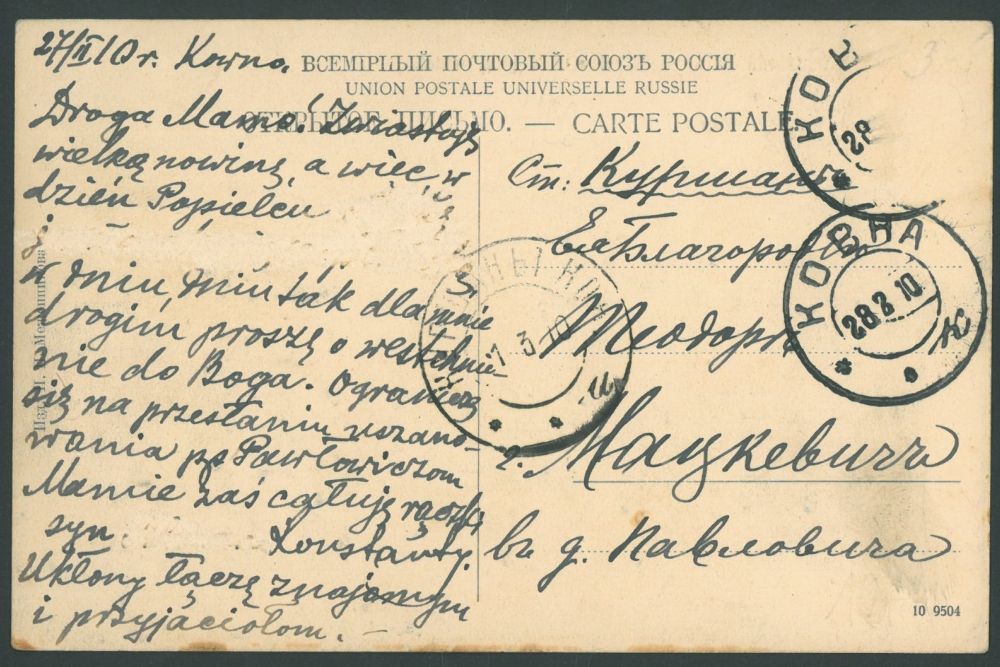 27/II 10 r. Kowno.
ВСЕМІРНЫЙ ПОЧТОВЫЙ СОЮЗЪ РОССІЯ
UNION POSTALE UNIVERSELLE RUSSIE
ОТКРЫТОЕ ПИСЬМО. — CARTE POSTALE
Droga Mamo! Zwiastuję
wielką nowinę, a więc, w
dzień Popielcu
i
w dniu, mnie tak dla mnie
drogim proszę o westchnie-
nie do Boga. Ograniczę
się na przesłaniu uszano-
wania pp Pawłowiczom
Mamie zaś całuję rączki
syn Konstanty.
Ukłony łączę znajomym
i przyjaciołom. —
Ст: Куршаны
Ея Благородію
Теодорѣ
г. Мацкевичъ
въ д. Павловича
КОВ
28
КОВНА
28 2 10
Ж
1 3 10
10 9504